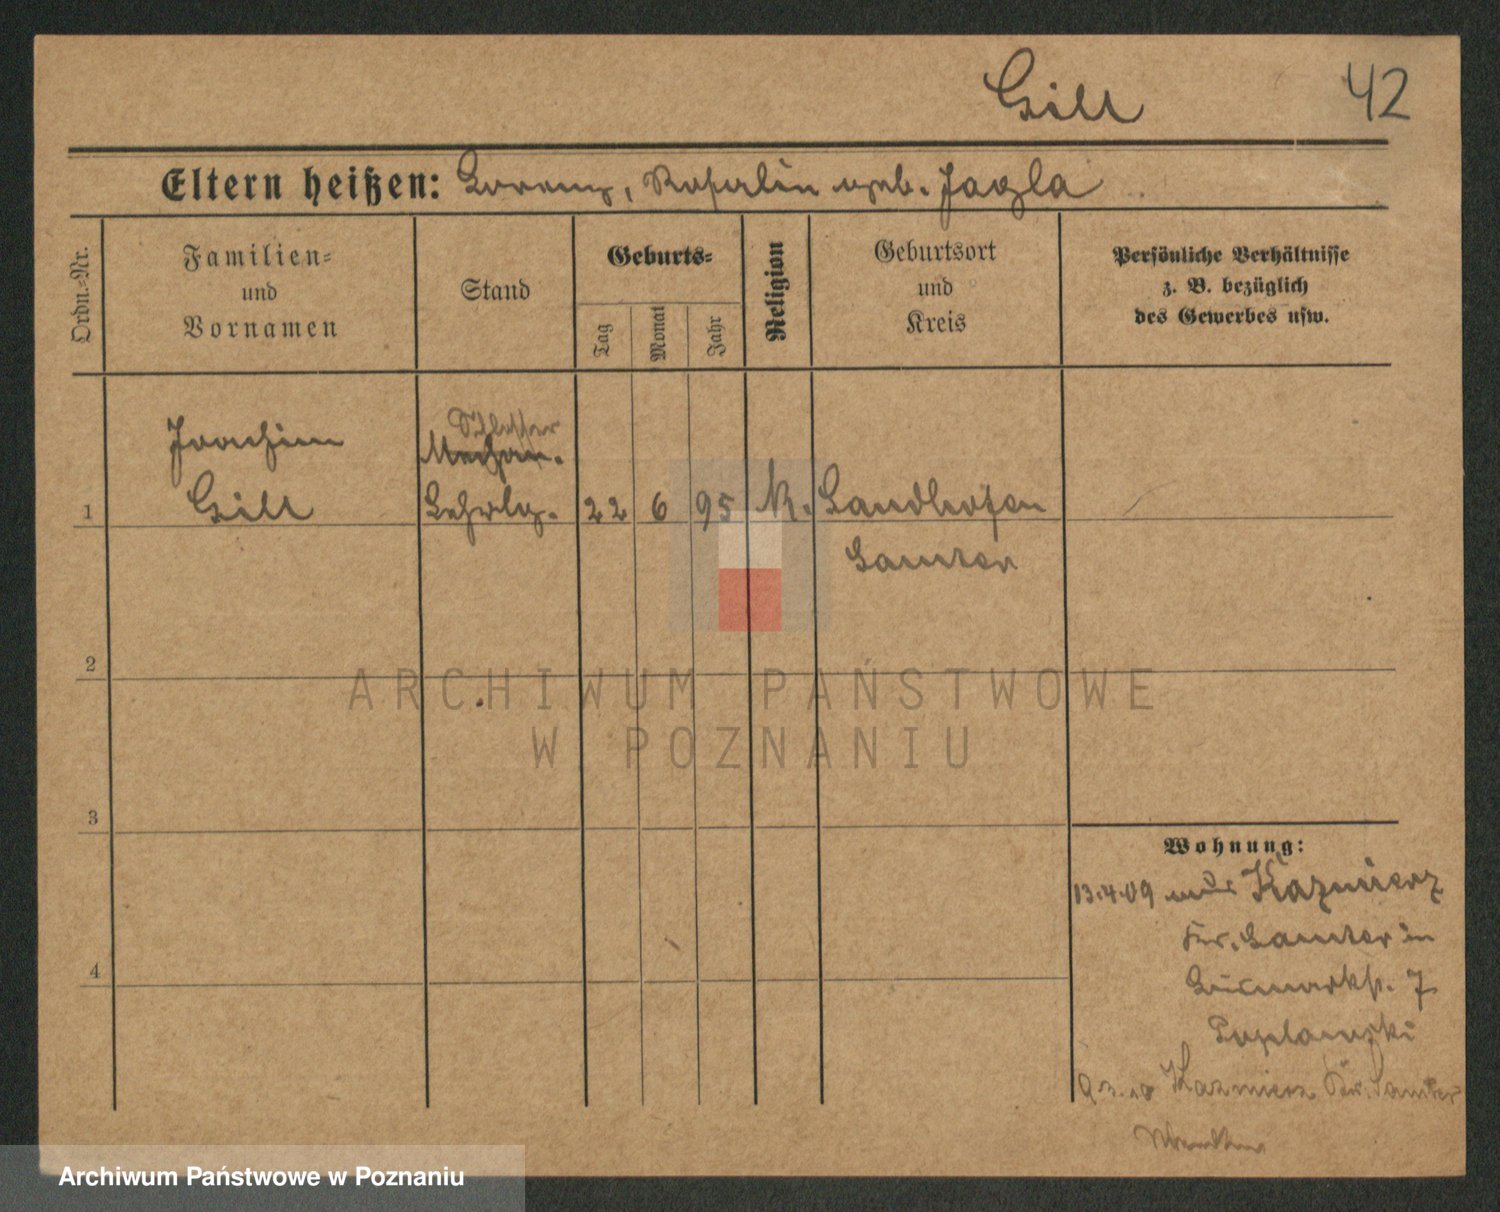 Gill 42
Eltern heißen: Lorenz, Rosalin geb. Jagla
Ordn.-Nr.
Familien-
und
Vornamen
Stand
Geburts-
Tag
Monat
Jahr
Religion
Geburtsort
und
Kreis
Persönliche Verhältnisse
z. B. bezüglich
des Gewerbes usw.
Joachim
Schlosser
Mechan.
1 Gill Lehrlg. 22 6 95 K. Sandhofen
Samter
2
3
4
Wohnung:
13.4.09 aus Kazmierz
Kr. Samter in
7
Poplawski
Kazmierz Kr. Samter
ARCHIWUM PAŃSTWOWE
W POZNANIU
Archiwum Państwowe w Poznaniu